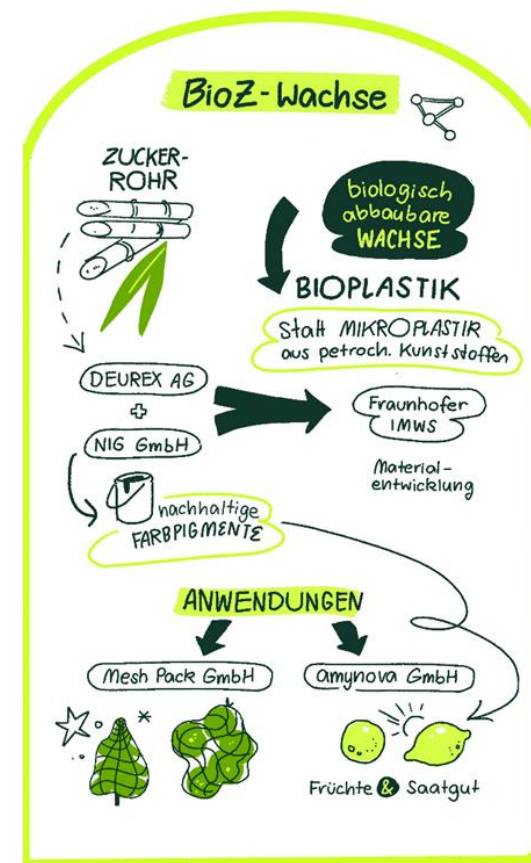 BioZ-Wachse
ZUCKER-
ROHR
biologisch
abbaubare
WACHSE
BIOPLASTIK
Statt MIKROPLASTIK
aus petroch. Kunststoffen
DEUREX AG
+
NIG GmbH
Fraunhofer
IMWS
Material-
entwicklung
nachhaltige
FARBPIGMENTE
ANWENDUNGEN
Mesh Pack GmbH
amynova GmbH
Früchte & Saatgut